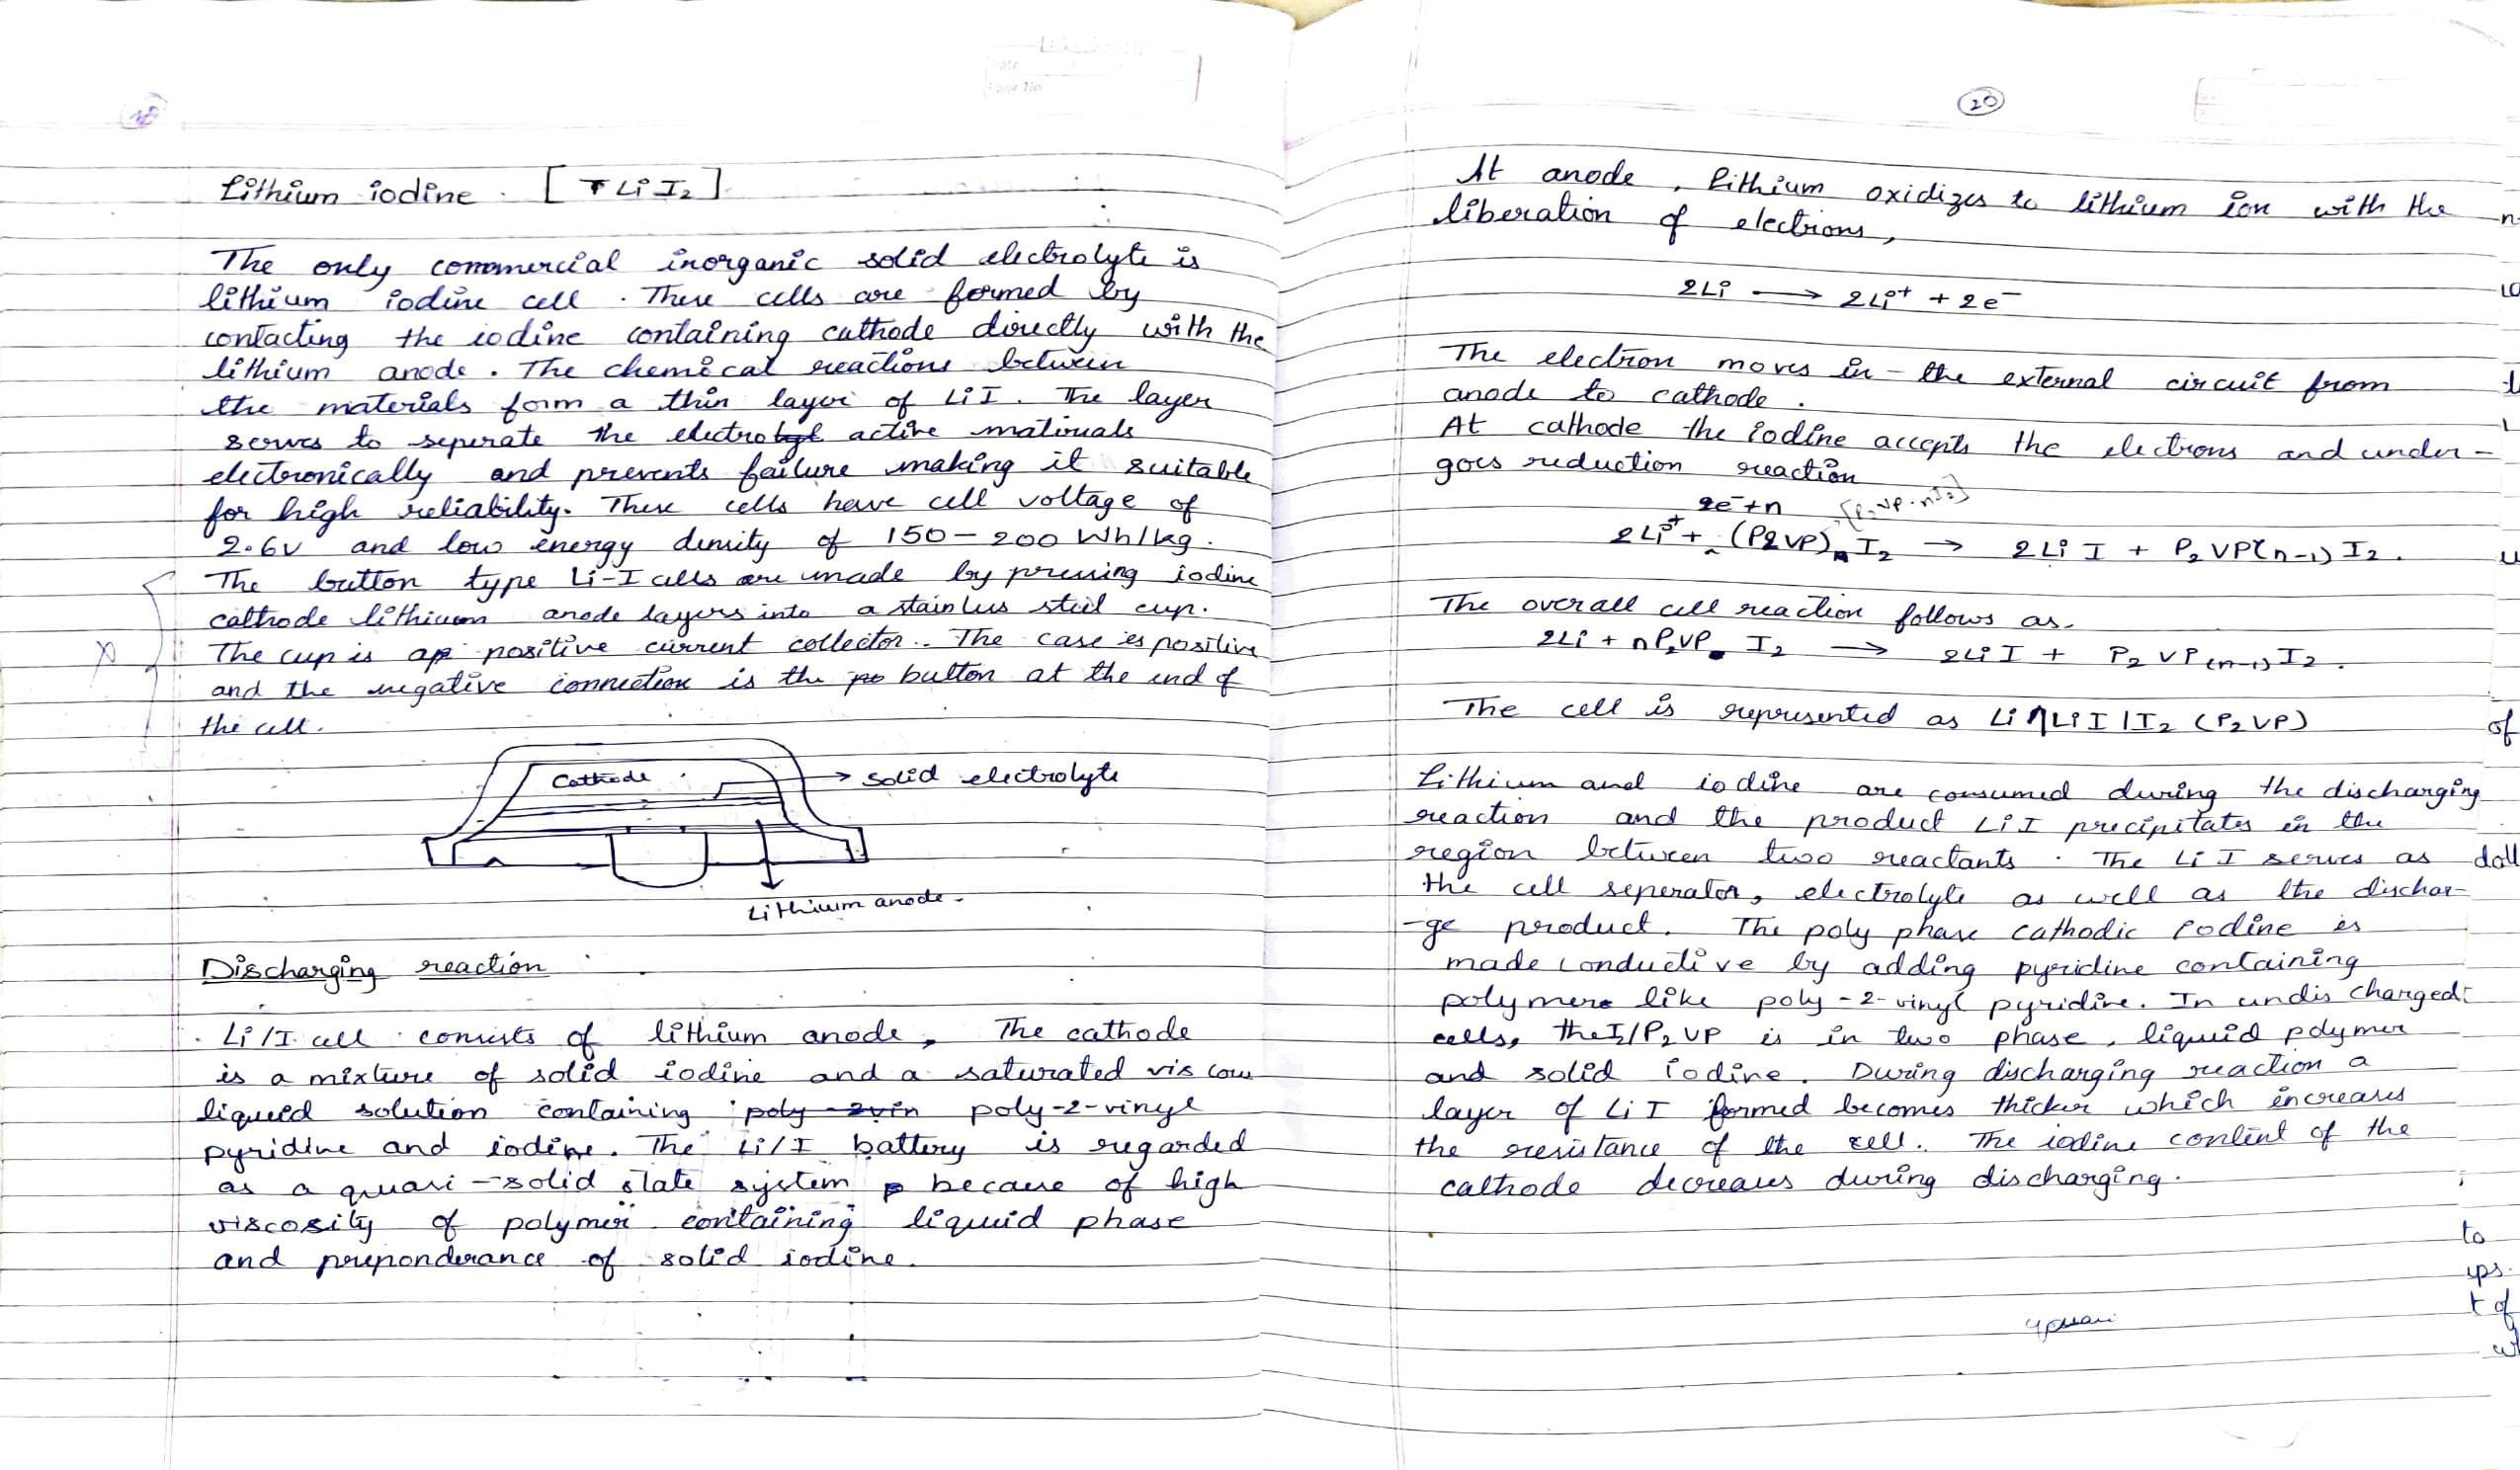 Lithium iodine. [ Li I₂ ]
The only commercial inorganic solid electrolyte is
lithium iodine cell. These cells are formed by
contacting the iodine containing cathode directly with the
lithium anode. The chemical reactions between
the materials form a thin layer of LiI. The layer
serves to seperate the electro active materials
electronically and prevents failure making it suitable
for high reliability. These cells have cell voltage of
2.6V and low energy density of 150-200 Wh/kg.
The button type Li-I cells are made by pressing iodine
cathode lithium anode layers into a stainless steel cup.
The cup is positive current collector. The case is positive
and the negative connection is the button at the end of
the cell.
Cathode
solid electrolyte
Lithium anode.
Discharging reaction
Li/I cell consists of lithium anode, The cathode
is a mixture of solid iodine and a saturated viscous
liquid solution containing poly-2-vinyl
pyridine and iodine. The Li/I battery is regarded
as a quasi-solid state system because of high
viscosity of polymer containing liquid phase
and preponderance of solid iodine.
20
At anode, lithium oxidizes to lithium ion with the
liberation of electrons,
2Li → 2Li⁺ + 2e⁻
The electron moves in the external circuit from
anode to cathode.
At cathode the iodine accepts the electrons and under-
goes reduction reaction
2e⁻+n [P₂VP.nI₂]
2Li⁺ + (P2VP) I₂ → 2LiI + P₂VP(n-1)I₂.
The overall cell reaction follows as.
2Li + nP₂VP I₂ → 2LiI + P₂VP(n-1)I₂.
The cell is represented as Li/LiI/I₂ (P₂VP)
Lithium and iodine are consumed during the discharging
reaction and the product LiI precipitates in the
region between two reactants. The LiI serves as
the cell seperator, electrolyte as well as the dischar-
-ge product. The poly phase cathodic iodine is
made conductive by adding pyridine containing
polymers like poly-2-vinyl pyridine. In undischarged
cells, the I₂/P₂VP is in two phase, liquid polymer
and solid iodine. During discharging reaction a
layer of LiI formed becomes thicker which increases
the resistance of the cell. The iodine content of the
cathode decreases during discharging.
quasi
of
to